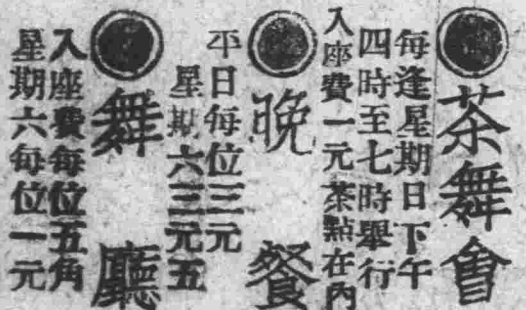 茶舞會
每逢星期日下午
四時至七時舉行
入座費一元茶點在內
晚餐
平日每位三元
星期六三元五
舞廳
入座費每位五角
星期六每位一元